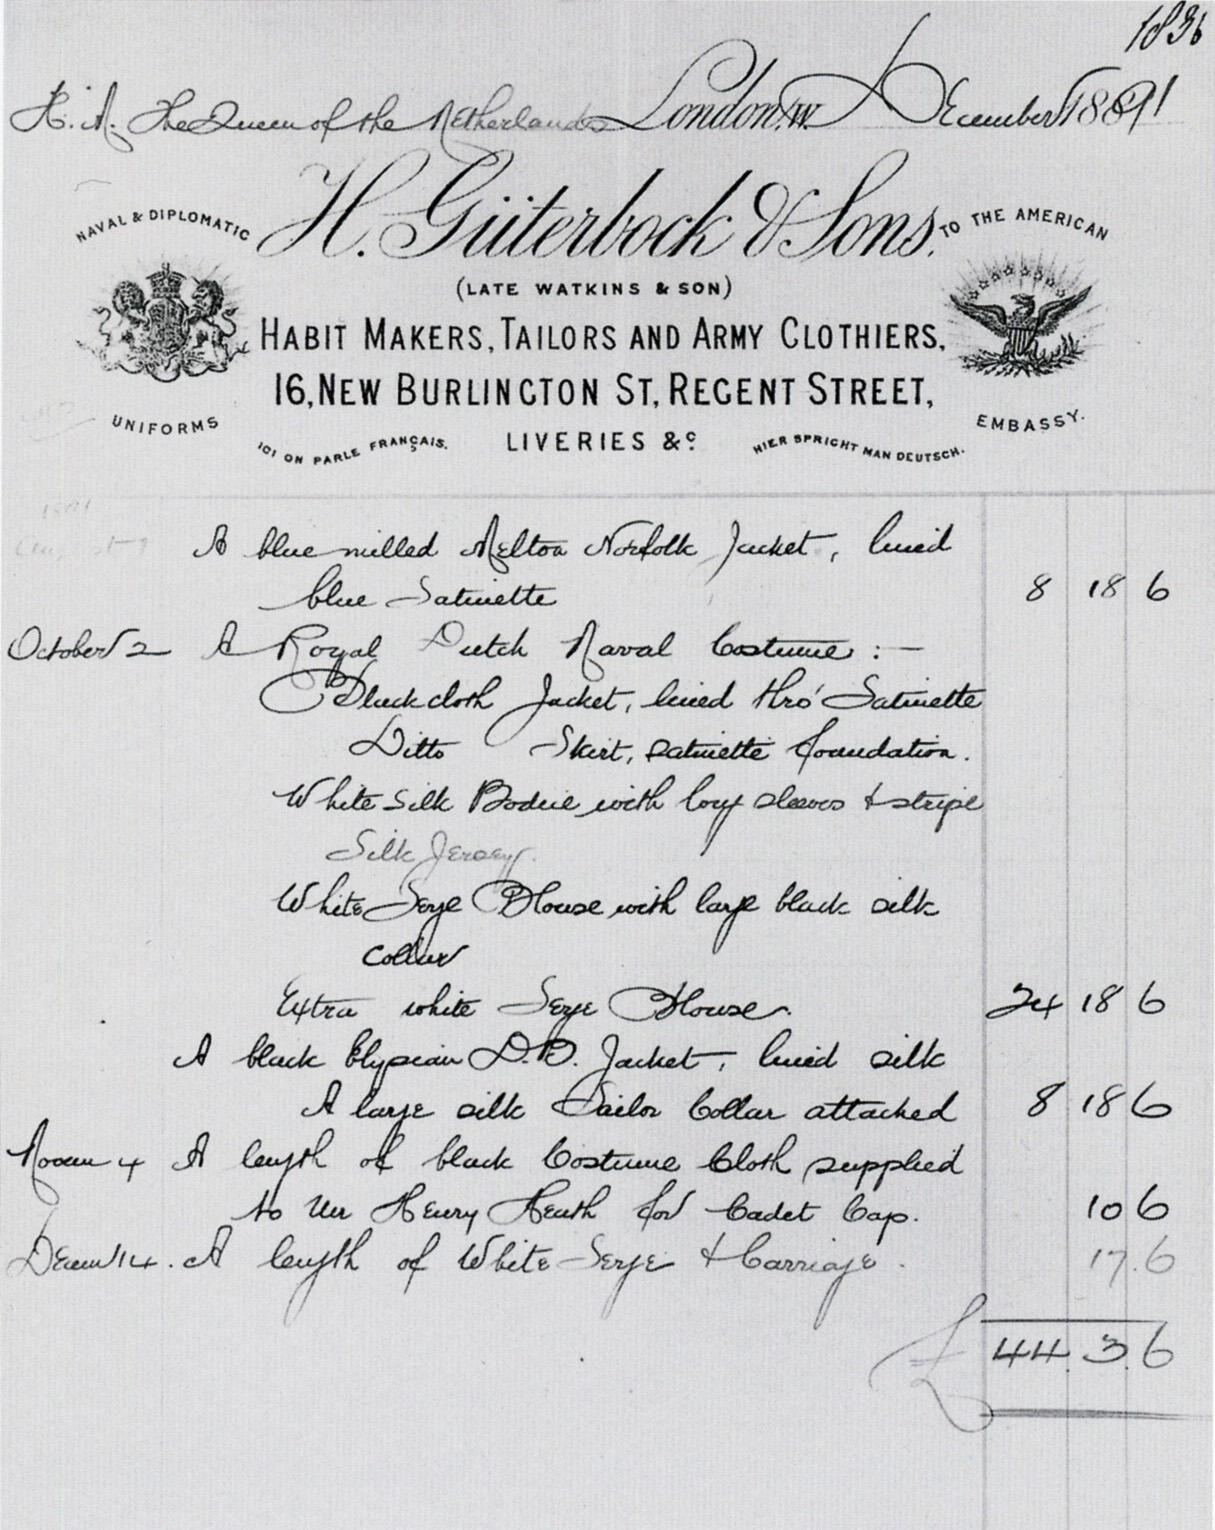 1836
H. M. The Queen of the Netherlands London. W. December 1891
NAVAL & DIPLOMATIC
H. Güterbock & Sons.
TO THE AMERICAN
(LATE WATKINS & SON)
HABIT MAKERS, TAILORS AND ARMY CLOTHIERS,
16, NEW BURLINGTON ST, REGENT STREET,
UNIFORMS
EMBASSY.
ICI ON PARLE FRANÇAIS.
LIVERIES &c
HIER SPRICHT MAN DEUTSCH.
1891
August
A blue milled Melton Norfolk Jacket, lined
blue Satinette 8 18 6
October 2 A Royal Dutch Naval Costume :—
Black cloth Jacket, lined thro' Satinette
Ditto Skirt, satinette foundation.
White Silk Bodice with long sleeves & stripe
Silk Jersey.
White Serge Blouse with large black silk
collar
Extra white Serge Blouse. 24 18 6
A black Elysian D.B. Jacket, lined silk
A large silk Sailor Collar attached 8 18 6
4 A length of black Costume Cloth supplied
to Mr Henry Heath for Cadet Cap. 10 6
14. A length of White Serge & Carriage. 17.6
£ 44.3.6